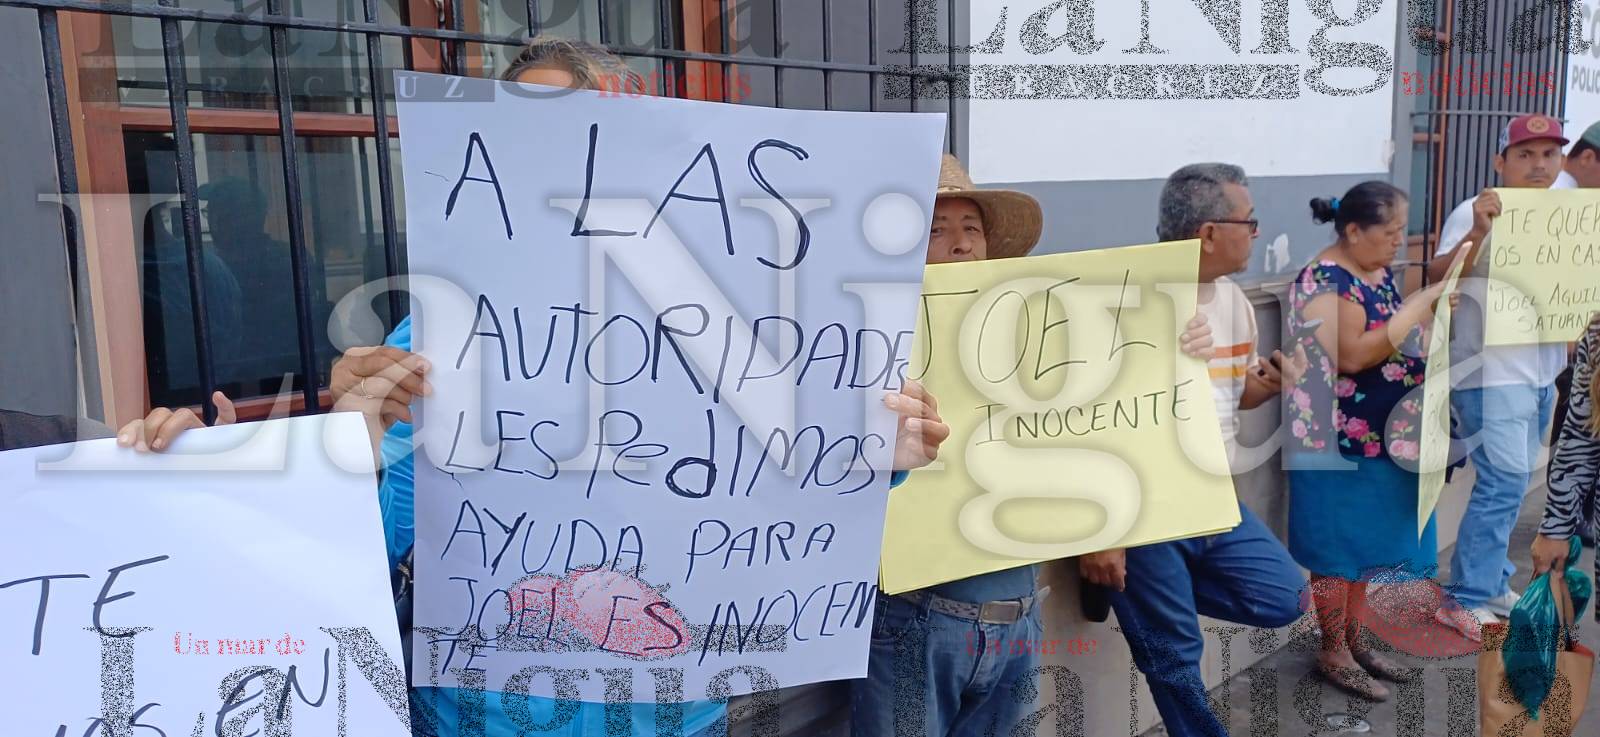 LaNigua
VERACRUZ
noticias
LaNigua
VERACRUZ
noticias
POLIC
A LAS
AUTORIDADES
LES PedIMOS
AYUDA PARA
JOEL ES INOCEN
TE
JOEL
INOCENTE
TE QUER
OS EN CAS
JOEL AGUIL
SATURN
TE
OS EN
LaNigua
Un mar de
LaNigua
Un mar de
LaNigua